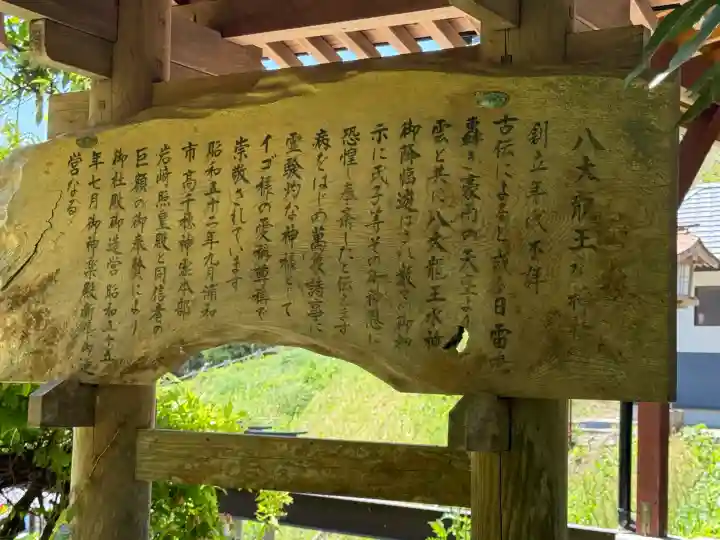 八大龍王水神
創立年代不詳
古伝によると或る日雷鳴
轟き豪雨の天空より
雲と共に八大龍王水神
御降臨遊ばされ数々御神
示に氏子等その御神恩に
恐惶し奉斎したと伝えます
病をはじめ萬般諸事に
霊験灼な神様として
イゴ様の愛称尊称で
崇敬されています
昭和五十二年九月浦和
市高千穂神霊本部
岩崎照皇殿と同信者の
巨額の御奉賛により
御社殿御造営昭和五十五
年七月御神楽殿新築御造
営なる